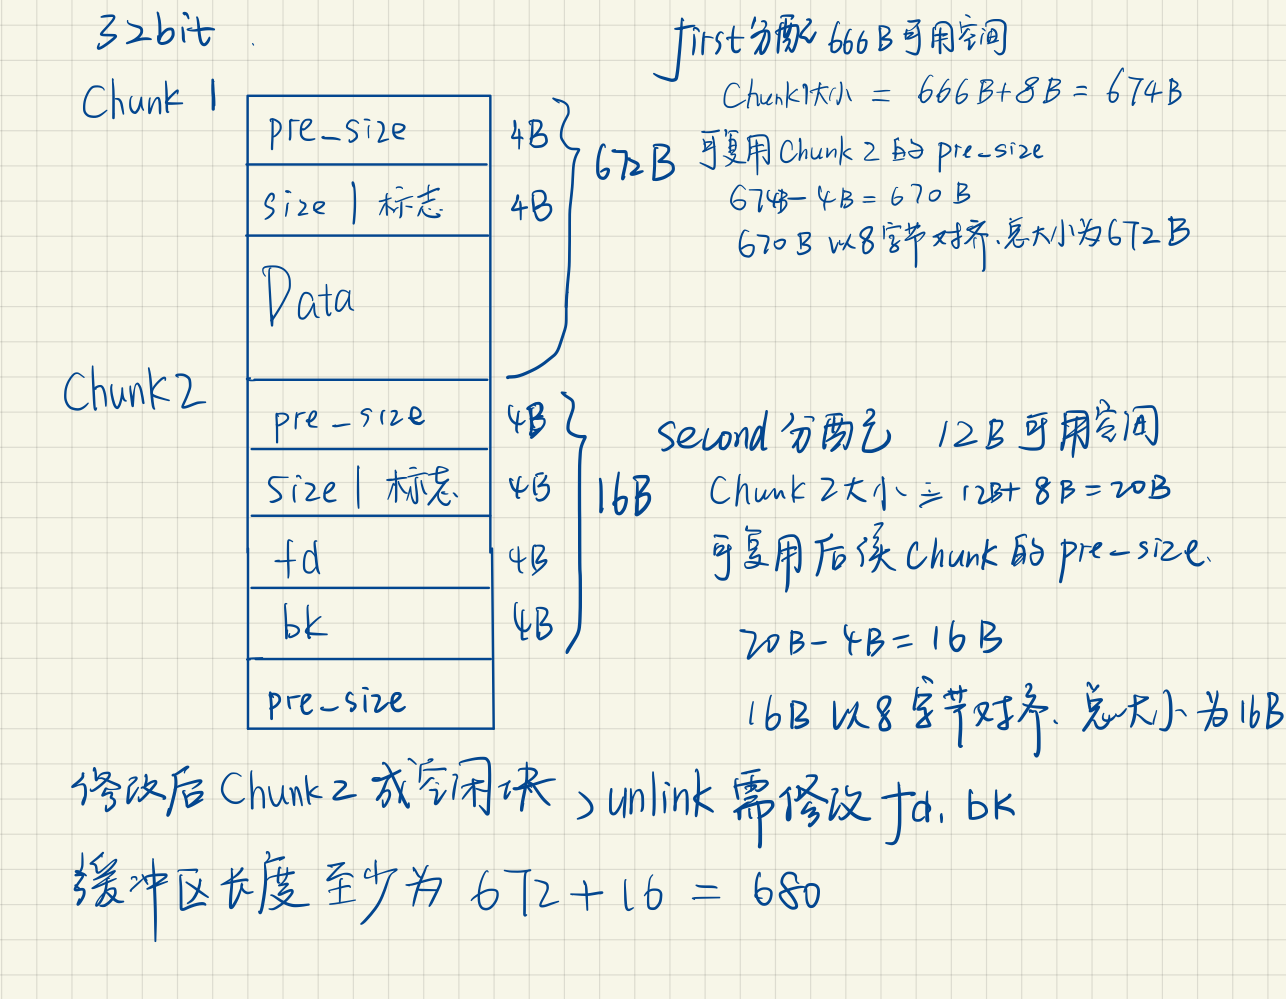 32bit
Chunk 1
pre_size 4B
size | 标志 4B
Data
672B
first分配 666B可用空间
Chunk1大小 = 666B+8B = 674B
可复用Chunk 2 的 pre_size
674B-4B=670B
670B 以8字节对齐.总大小为672B
Chunk2
pre_size 4B
size | 标志 4B
fd 4B
bk 4B
pre_size
16B
second分配 12B可用空间
Chunk 2大小 = 12B+8B=20B
可复用后续Chunk的pre-size.
20B-4B=16B
16B 以8字节对齐. 总大小为16B
修改后 Chunk2 成空闲块 , unlink 需修改 fd, bk
缓冲区长度至少为 672+16 = 680